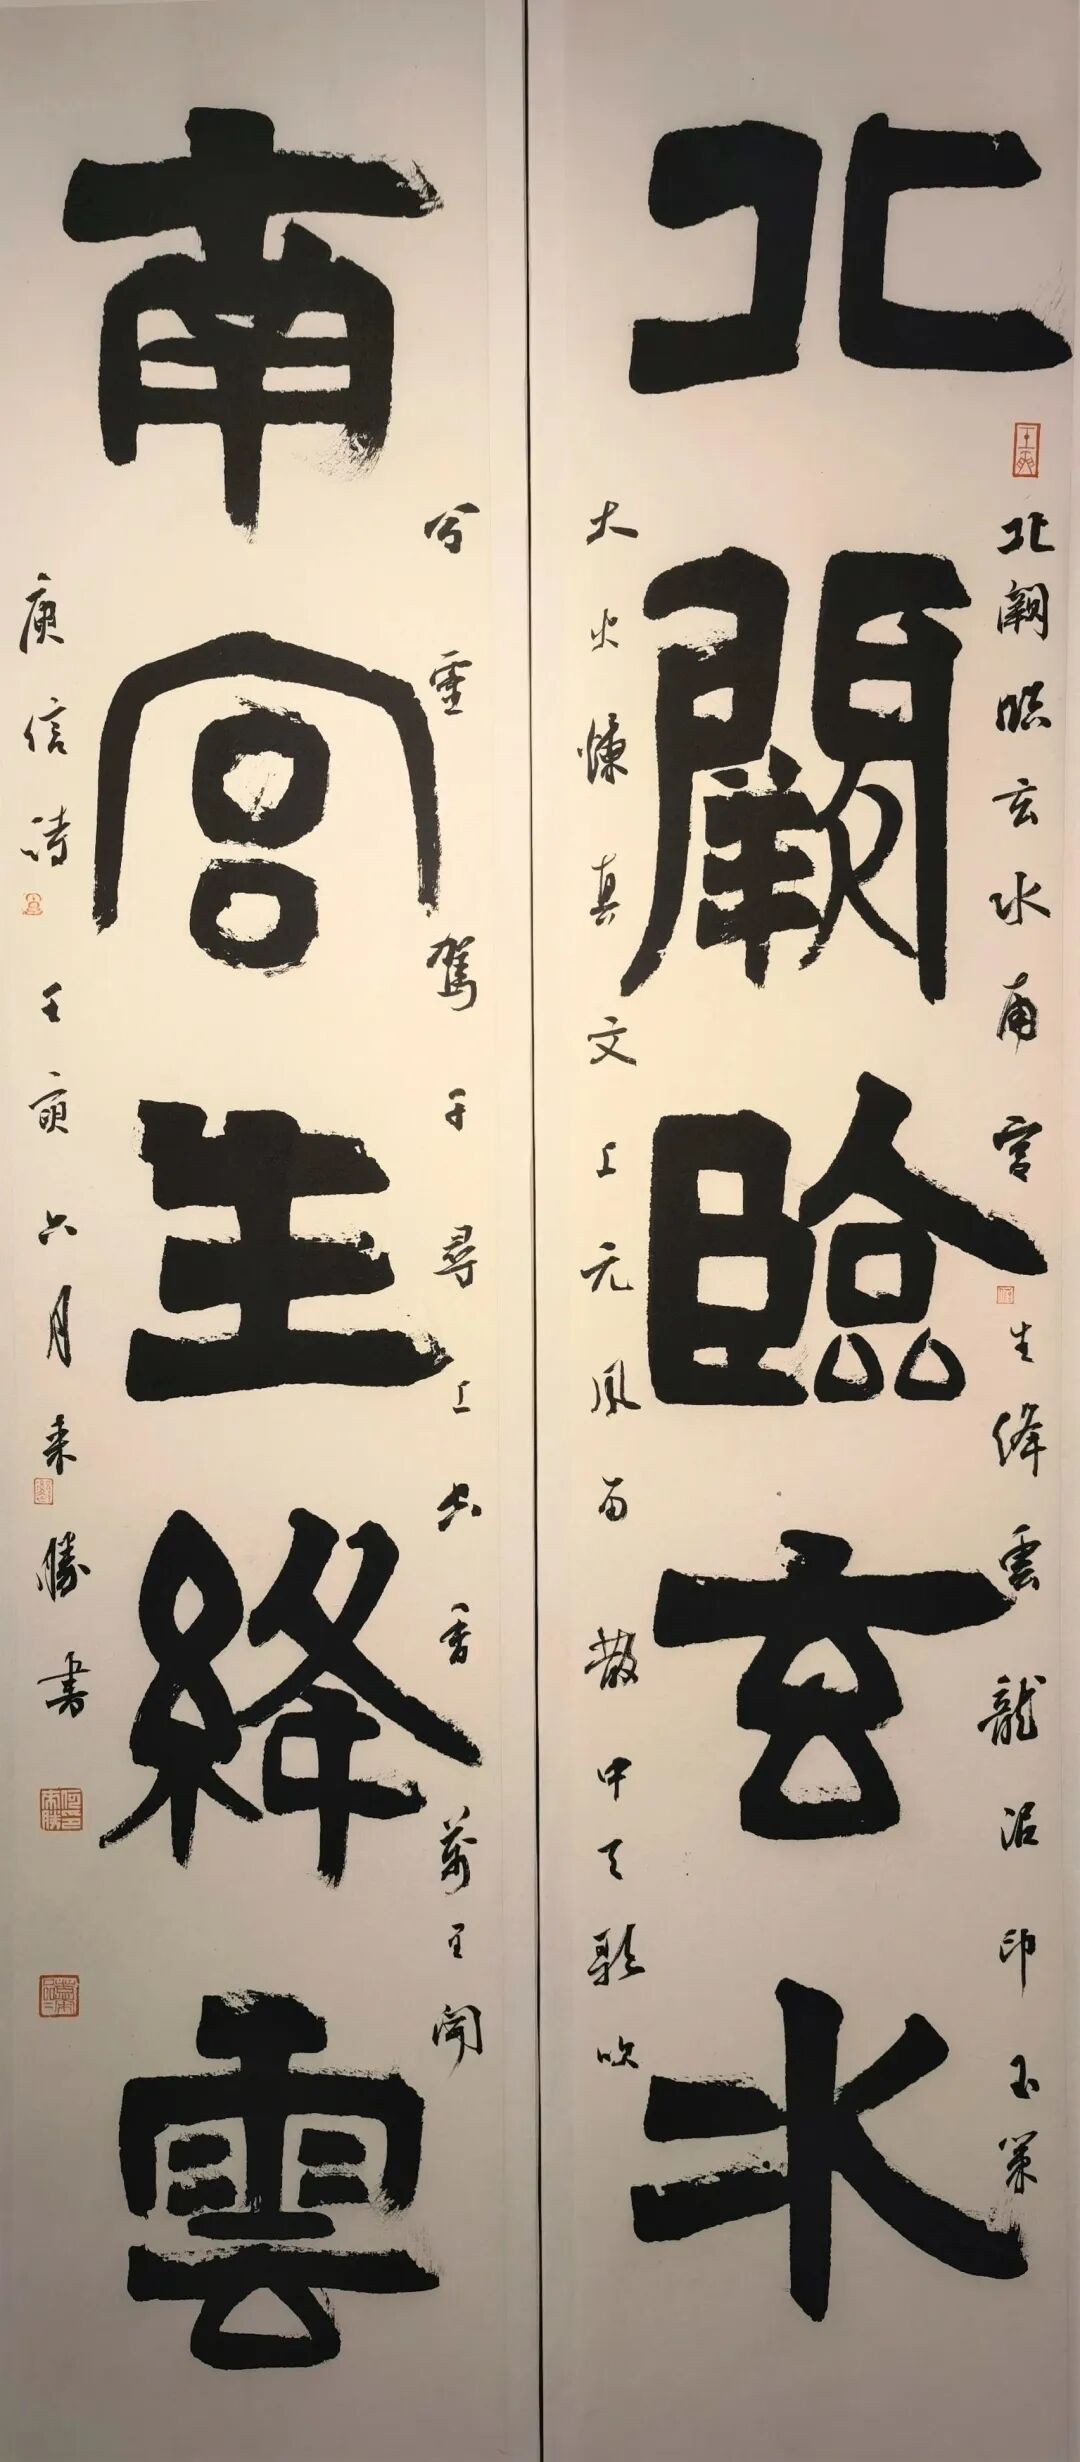 北闕臨玄水
壬寅
北闕臨玄水南宮生絳雲龍泥印玉策
大火煉真文上元風雨散中天歌吹
南宮生絳雲
分靈駕千尋上空香萬里聞
庾信詩壬寅六月來勝書